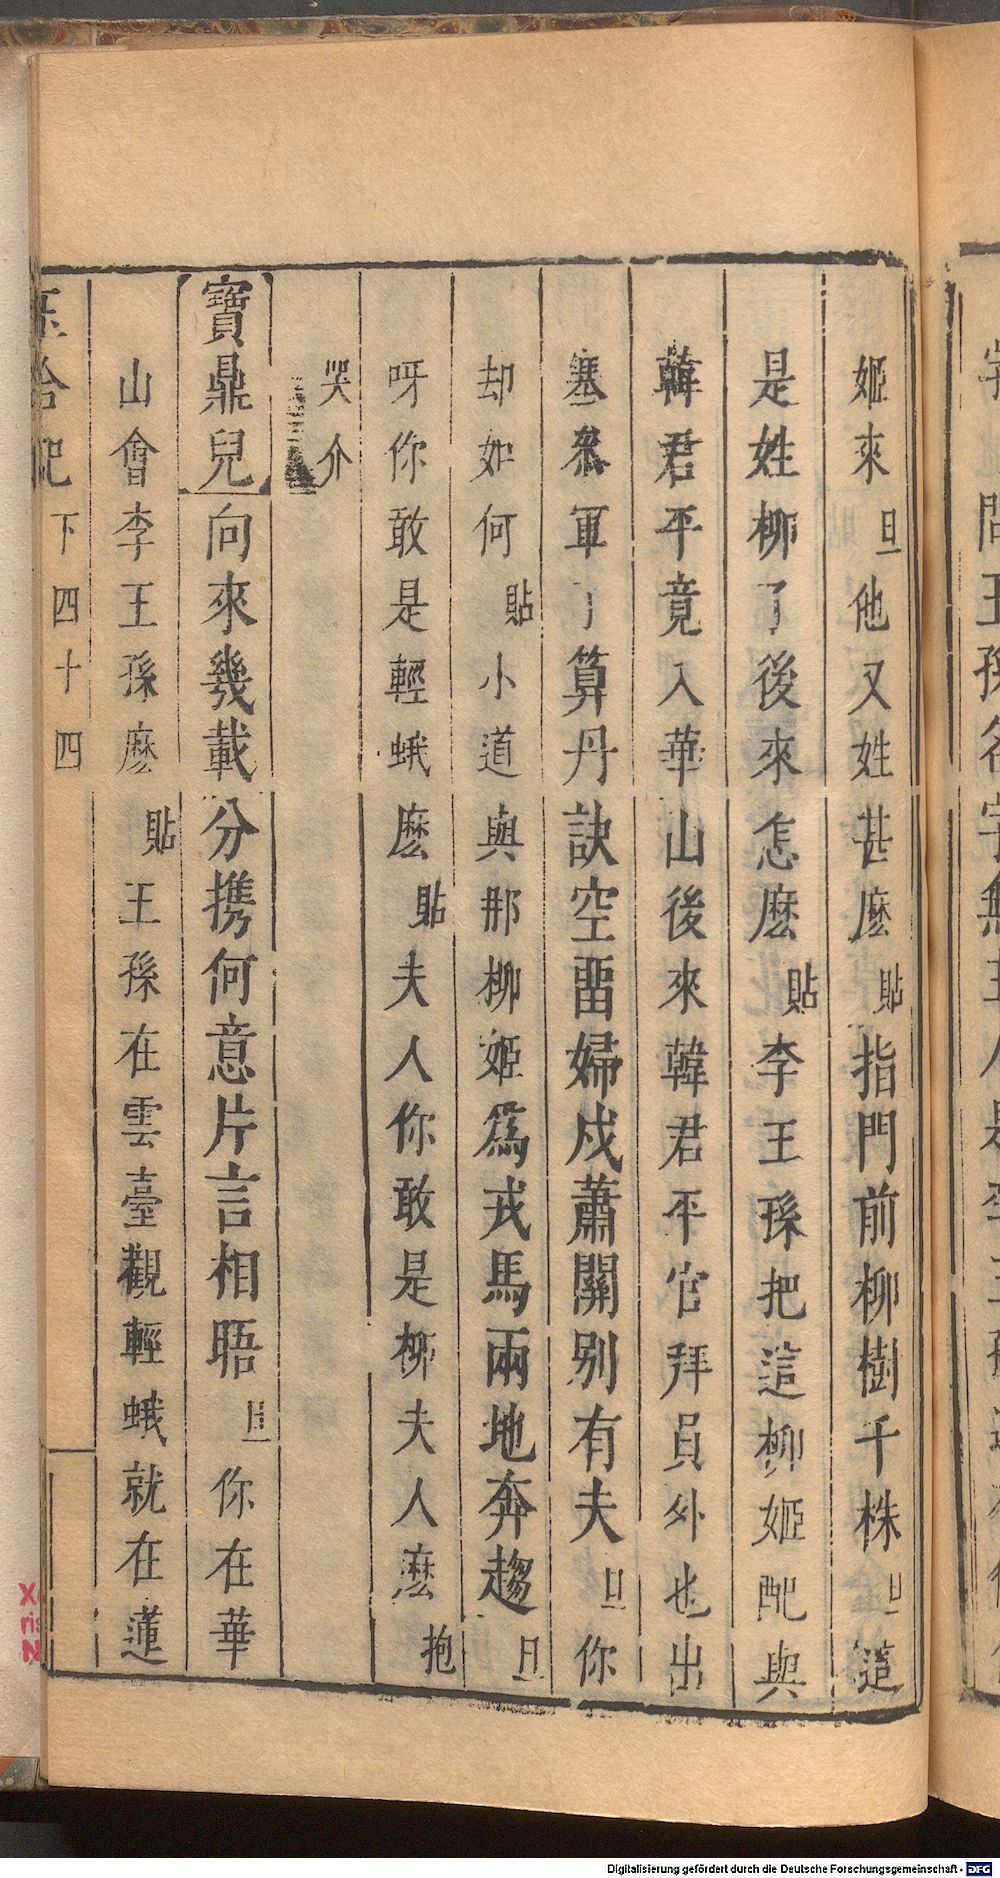 姬來旦他又姓甚麽貼指門前柳樹千株旦這
是姓柳了後來怎麽貼李王孫把這柳姬配與
韓君平竟入華山後來韓君平官拜員外也出
塞叅軍了算丹訣空畱婦戍蕭關别有夫旦你
却如何貼小道與那柳姬爲戎馬兩地奔趨旦
呀你敢是輕蛾麽貼夫人你敢是柳夫人麽抱
哭介
寶鼎兒向來幾載分攜何意片言相晤旦你在華
山會李王孫麽貼王孫在雲臺觀輕蛾就在蓮
玉合記下四十四
Digitalisierung gefördert durch die Deutsche Forschungsgemeinschaft - DFG